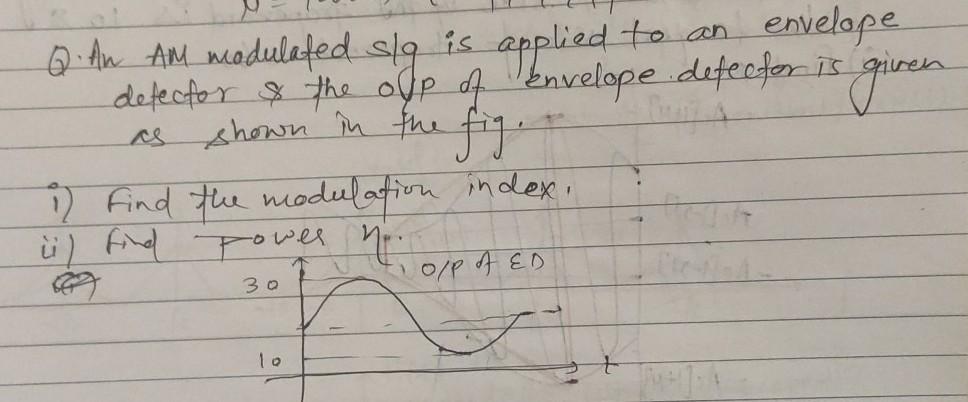 Q. An AM modulated s/g is applied to an envelope
detector & the o/p of envelope detector is given
as shown in the fig.
i) Find the modulation index.
ii) find power η.
30
O/P of ED
10
t